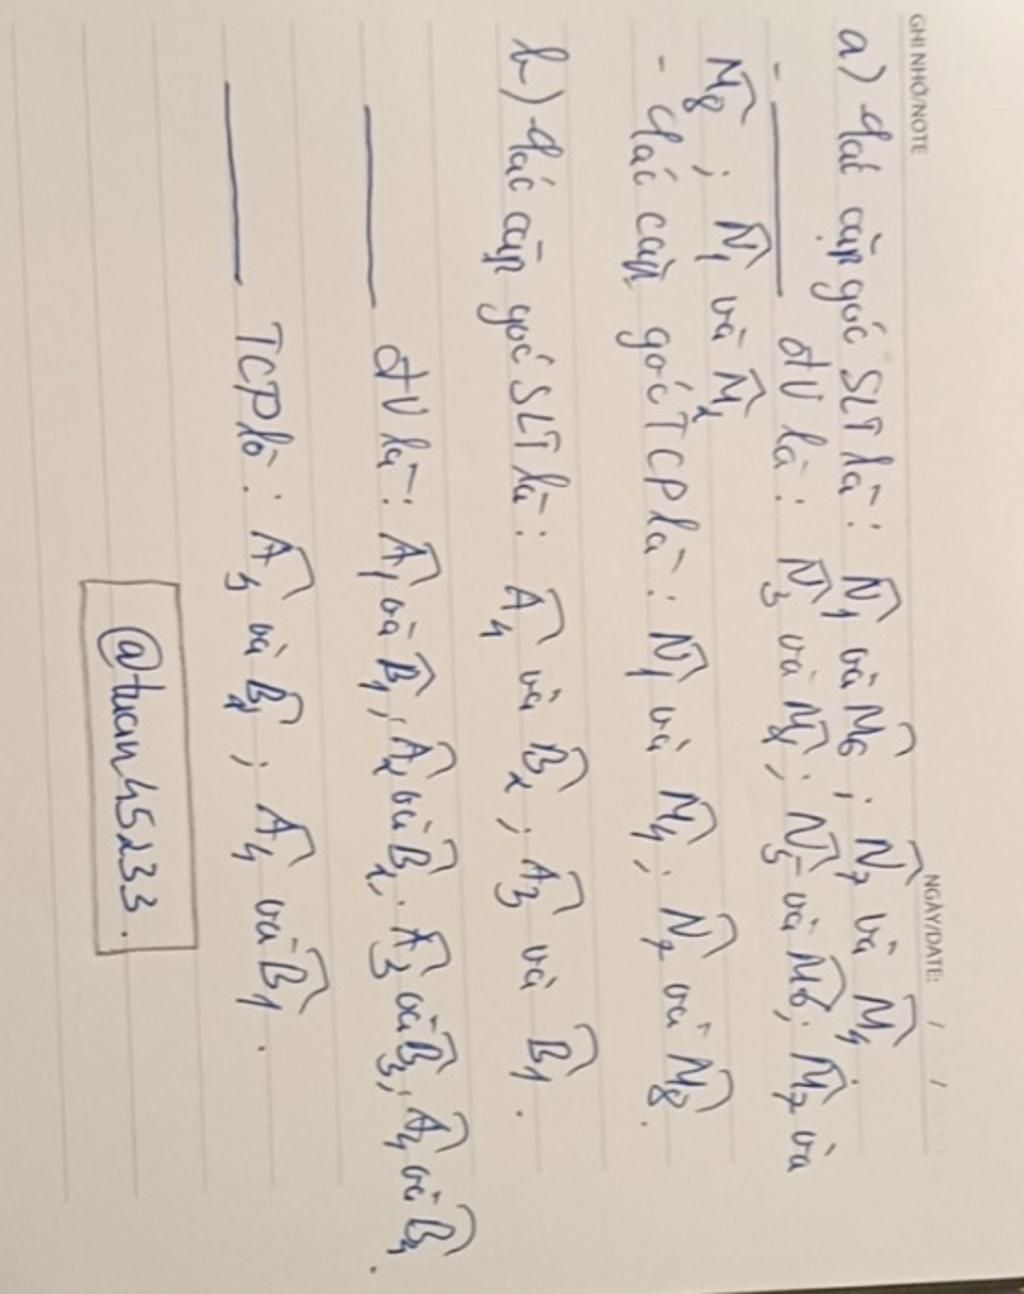 GHI NHỚ/NOTE NGÀY/DATE: / /
a) Các cặp góc SLT là: N̂₁ và M̂₆; N̂₇ và M̂₄.
- ĐV là: N̂₃ và; N̂₅ và M̂₆; M̂₇ và
M̂₈; N̂₁ và M̂₂
- Các cặp góc TCP là: N̂₁ và M̂₄; N̂₇ và M̂₈.
b) Các cặp góc SLT là: Â₄ và B̂₂; Â₃ và B̂₁.
ĐV là: Â₁ và B̂₁; Â₂ và B̂₂; Â₃ và B̂₃; Â₄ và B̂₄.
TCP là: Â₃ và; Â₄ và B̂₁.
@tuan45233.